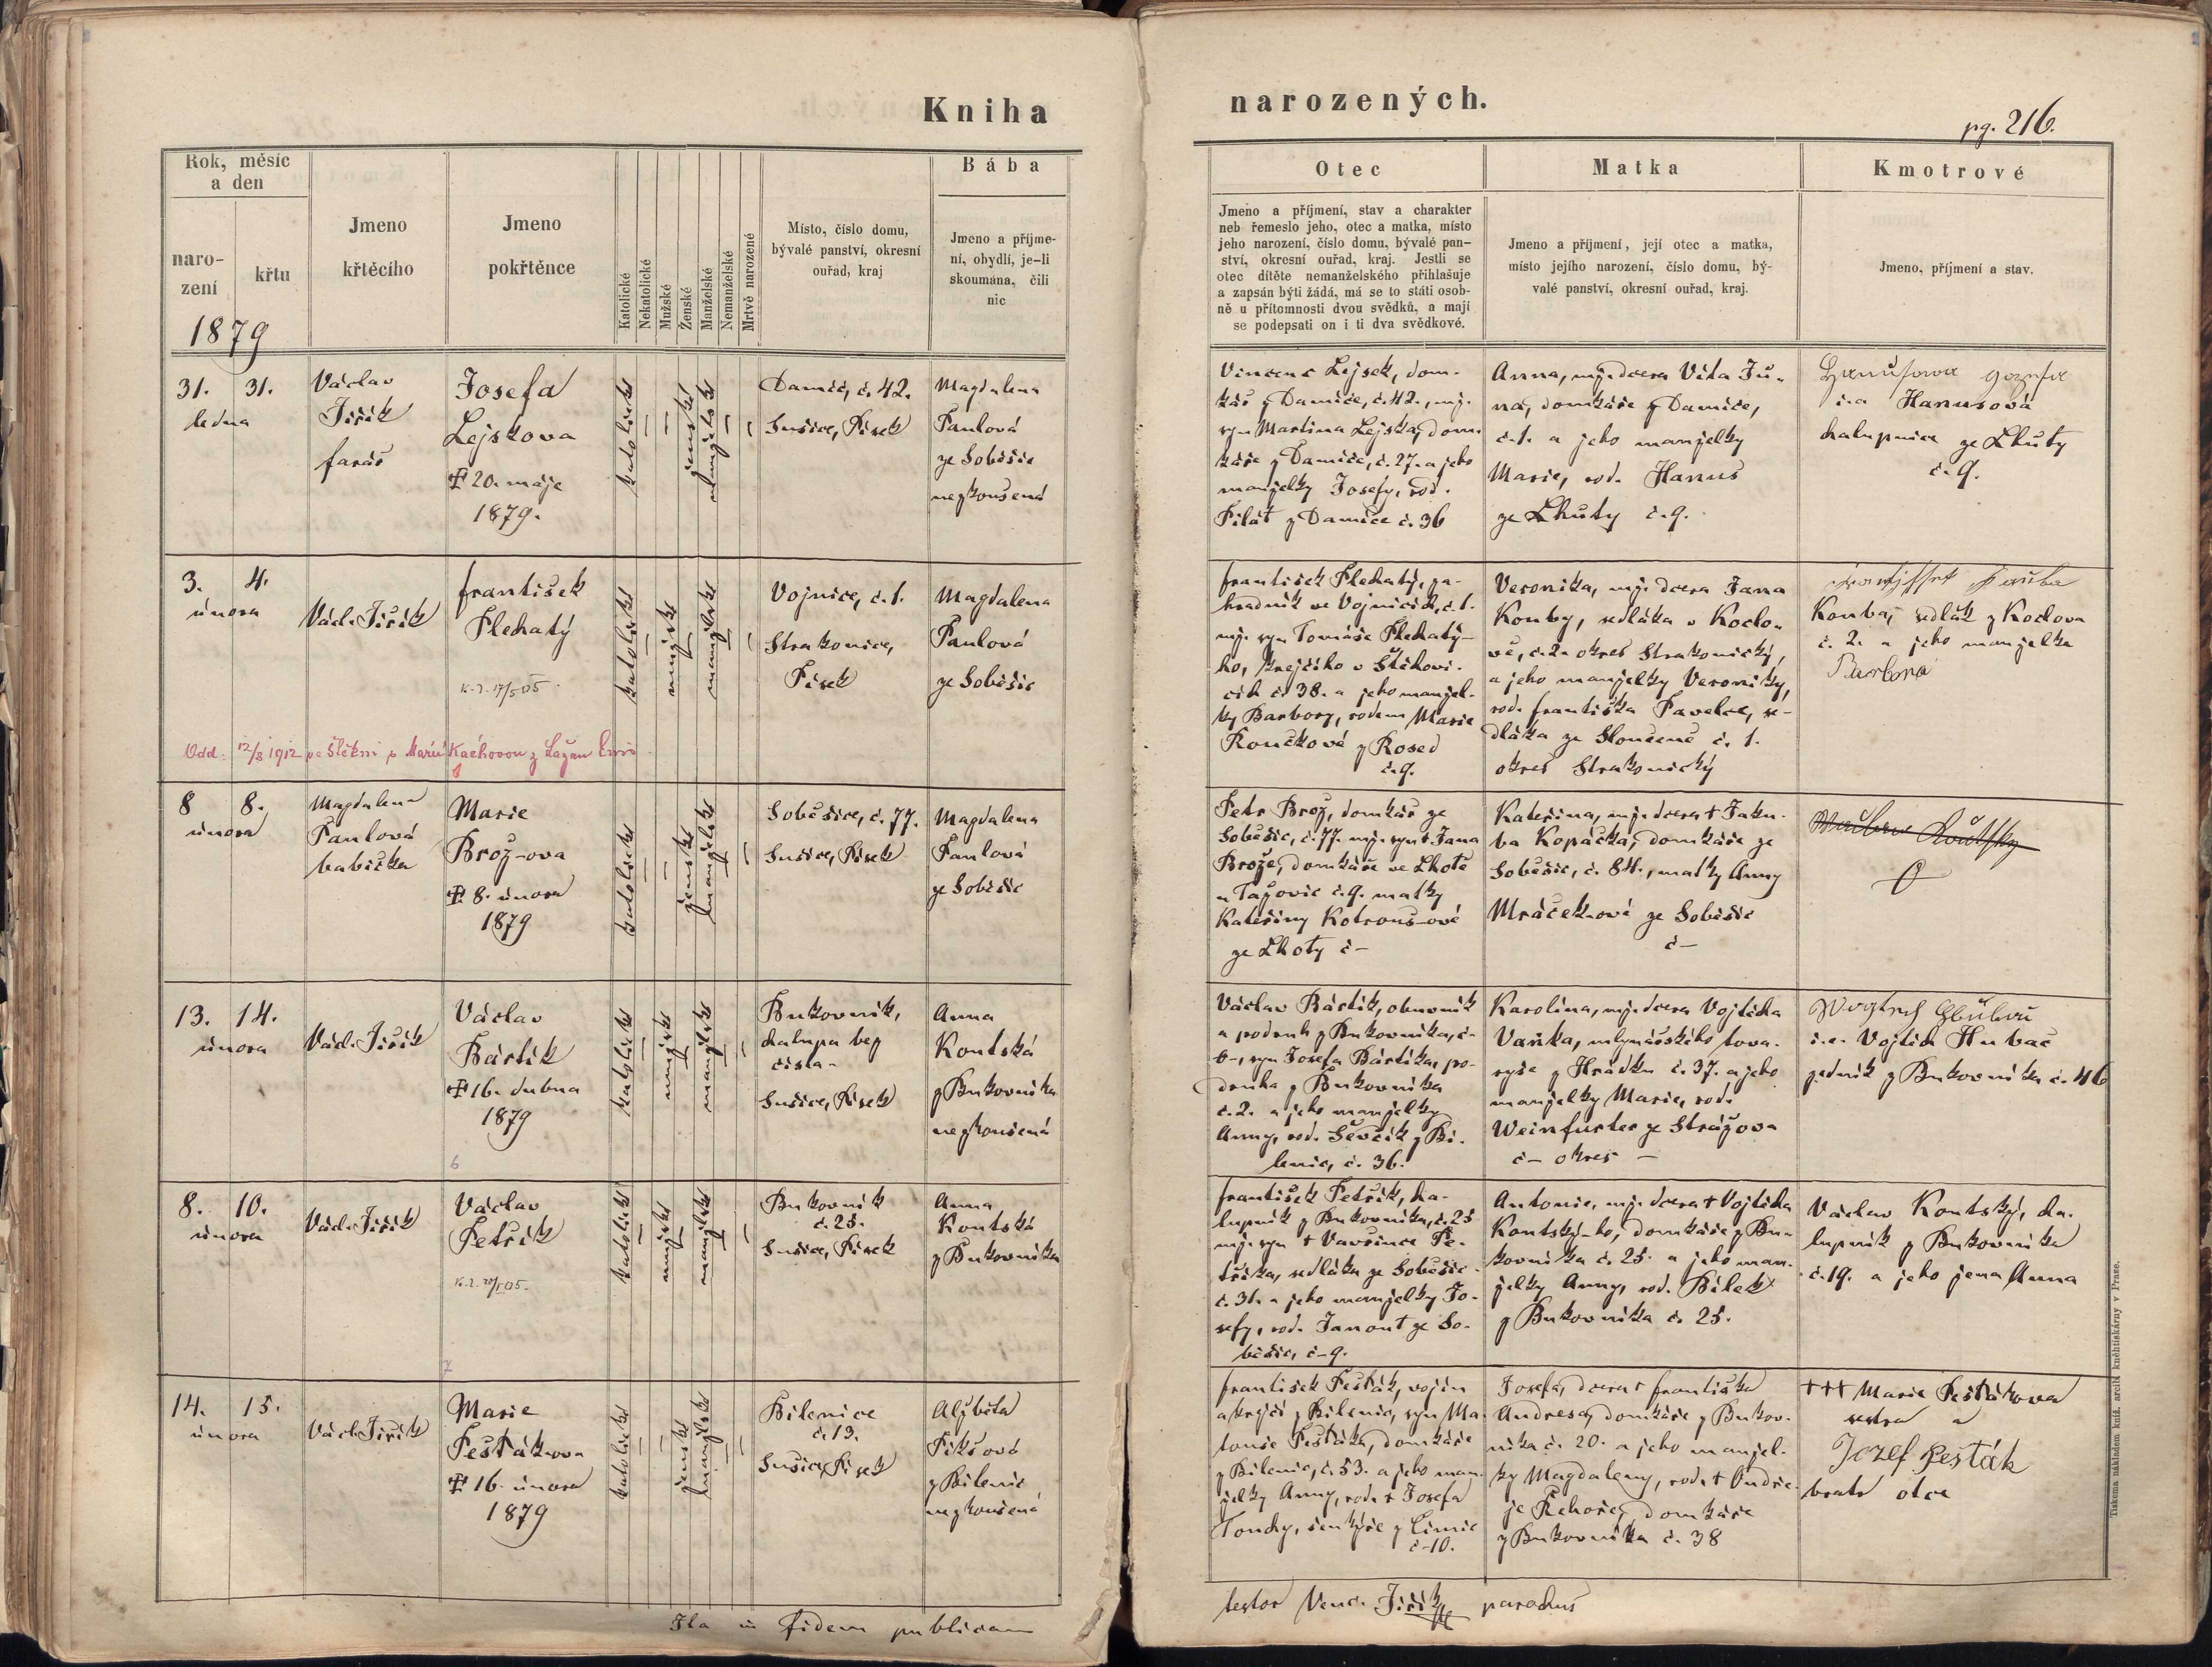 Kniha
narozených.
pg. 216.
Rok, měsíc
a den
naro-
zení
křtu
1879
Jmeno
křtěcího
Jmeno
pokřtěnce
Katolické
Nekatolické
Mužské
Ženské
Manželské
Nemanželské
Mrtvě narozené
Místo, číslo domu,
bývalé panství, okresní
ouřad, kraj
Bába
Jmeno a příjme-
ní, obydlí, je-li
skoumána, čili
nic
Otec
Jmeno a příjmení, stav a charakter
neb řemeslo jeho, otec a matka, místo
jeho narození, číslo domu, bývalé pan-
ství, okresní ouřad, kraj. Jestli se
otec dítěte nemanželského přihlašuje
a zapsán býti žádá, má se to státi osob-
ně u přítomnosti dvou svědků, a mají
se podepsati on i ti dva svědkové.
Matka
Jmeno a příjmení, její otec a matka,
místo jejího narození, číslo domu, bý-
valé panství, okresní ouřad, kraj.
Kmotrové
Jmeno, příjmení a stav.
31. 31.
ledna
Václav
Jiřík
farář
Josefa
Lejskova
20. máje
1879.
katolické
ženské
manželské
Damíč, č. 42.
Sušice, Písek
Magdalena
Paulová
ze Soběšic
nezkoušená
Vincenc Lejsek, dom-
kář z Damíče, č. 42., mž.
syn Martina Lejska, dom-
káře z Damíče, č. 27. a jeho
manželky Josefy, roz.
Pilát z Damíče č. 36
Anna, mž. dcera Víta Jů-
na, domkáře z Damíče,
č. 1. a jeho manželky
Marie, roz. Hanus
ze Lhuty č. 9.
i.e. Hanusová
chalupnice ze Lhuty
č. 9.
3. 4.
února
Václ. Jiřík
František
Plechatý
k.l. 17/5 05.
katolické
mužské
manželské
Vojnice, č. 1.
Strakonice,
Písek
Magdalena
Paulová
ze Soběšic
František Plechatý, za-
hradník ve Vojnicích, č. 1.
mž. syn Tomáše Plechatý-
ho, krejčího v Štěchovi-
cích č. 38. a jeho manžel-
ky Barbory, rodem Marie
Koučkové z Kosed
č. 9.
Veronika, mž. dcera Jana
Kouby, sedláka v Koclo-
vě, č. 2. okres Strakonický,
a jeho manželky Veroniky,
rod. Františka Pavelce, se-
dláka ze Slončené č. 1.
okres Strakonický
Kouba, sedlák z Koclova
č. 2. a jeho manželka
Barbora
Odd. 12/8 1912 ve Štěkni s Marií Kaëhovou z Lažan
8 8.
února
Magdalena
Paulová
babička
Marie
Brož-ova
8. února
1879
katolické
ženské
manželské
Soběšice, č. 77.
Sušice, Písek
Magdalena
Paulová
ze Soběšic
Petr Brož, domkář ze
Soběšic, č. 77. mž. syn † Jana
Brože, domkáře ve Lhotě
u Tažovic č. 9. matky
Kateřiny Kotrous-ové
ze Lhoty č –
Kateřina, mž. dcera † Jaku-
ba Kopáčka, domkáře ze
Soběšic, č. 84., matky Anny
Mráček-ové ze Soběšic
č –
13. 14.
února
Václ. Jiřík
Václav
Bártík
16. dubna
1879
6
katolické
mužské
manželské
Bukovník,
chalupa bez
čísla-
Sušice, Písek
Anna
Koutská
z Bukovníka
nezkoušená
Václav Bártík, obuvník
a podruh z Bukovníka, č-
0-, syn Josefa Bártíka, po-
druha z Bukovníka
č. 2. a jeho manželky
Anny, rod. Ševčík z Bi-
lenic, č. 36.
Karolina, mž. dcera Vojtěcha
Vaňka, mlynářského tova-
ryše z Hrádku č. 37. a jeho
manželky Marie, rod.
Weinfurter ze Strážova
č – okres –
i.e. Vojtěch Hubač
zedník z Bukovníka č. 46
8. 10.
února
Václ. Jiřík
Václav
Petřík
7
katolické
mužské
manželské
Bukovník
č. 25.
Sušice, Písek
Anna
Koutská
z Bukovníka
František Petřík, cha-
lupník z Bukovníka, č. 25
mž. syn † Vavřince Pe-
tříka, sedláka ze Soběšic
č. 31. a jeho manželky Jo-
sefy, rod. Janout ze So-
běšic, č-9.
Antonie, mž. dcera † Vojtěcha
Koutský-ho, domkáře z Bu-
kovníka č. 25. a jeho man-
želky Anny, rod. Bílek
z Bukovníka č. 25.
Václav Koutský, cha-
lupník z Bukovníka
č. 19. a jeho žena Anna
14. 15.
února
Václ. Jiřík
Marie
Pešták-ova
16. února
1879
katolické
ženské
manželské
Bilenice
č. 13.
Sušice, Písek
Alžběta
Pikšová
z Bilenic
nezkoušená
František Pešták, vojín
a krejčí z Bilenic, syn Ma-
touše Peštáka, domkáře
z Bilenic, č. 53. a jeho man-
želky Anny, rod. † Josefa
Touchy, šenkýře z Čimic
č-10.
Josefa, dcera † Františka
Andresa, domkáře z Bukov-
níka č. 20. a jeho manžel-
ky Magdaleny, rod. † Ondře-
je Řehoře, domkáře
z Bukovníka č. 38
+++ Marie Peštákova
sestra a
Jozef Pešták
bratr otce
Ita in fidem publicam
testor Venc. Jiřík parochus
Tiskem a nákladem kníž. arcib. knihtiskárny v Praze.